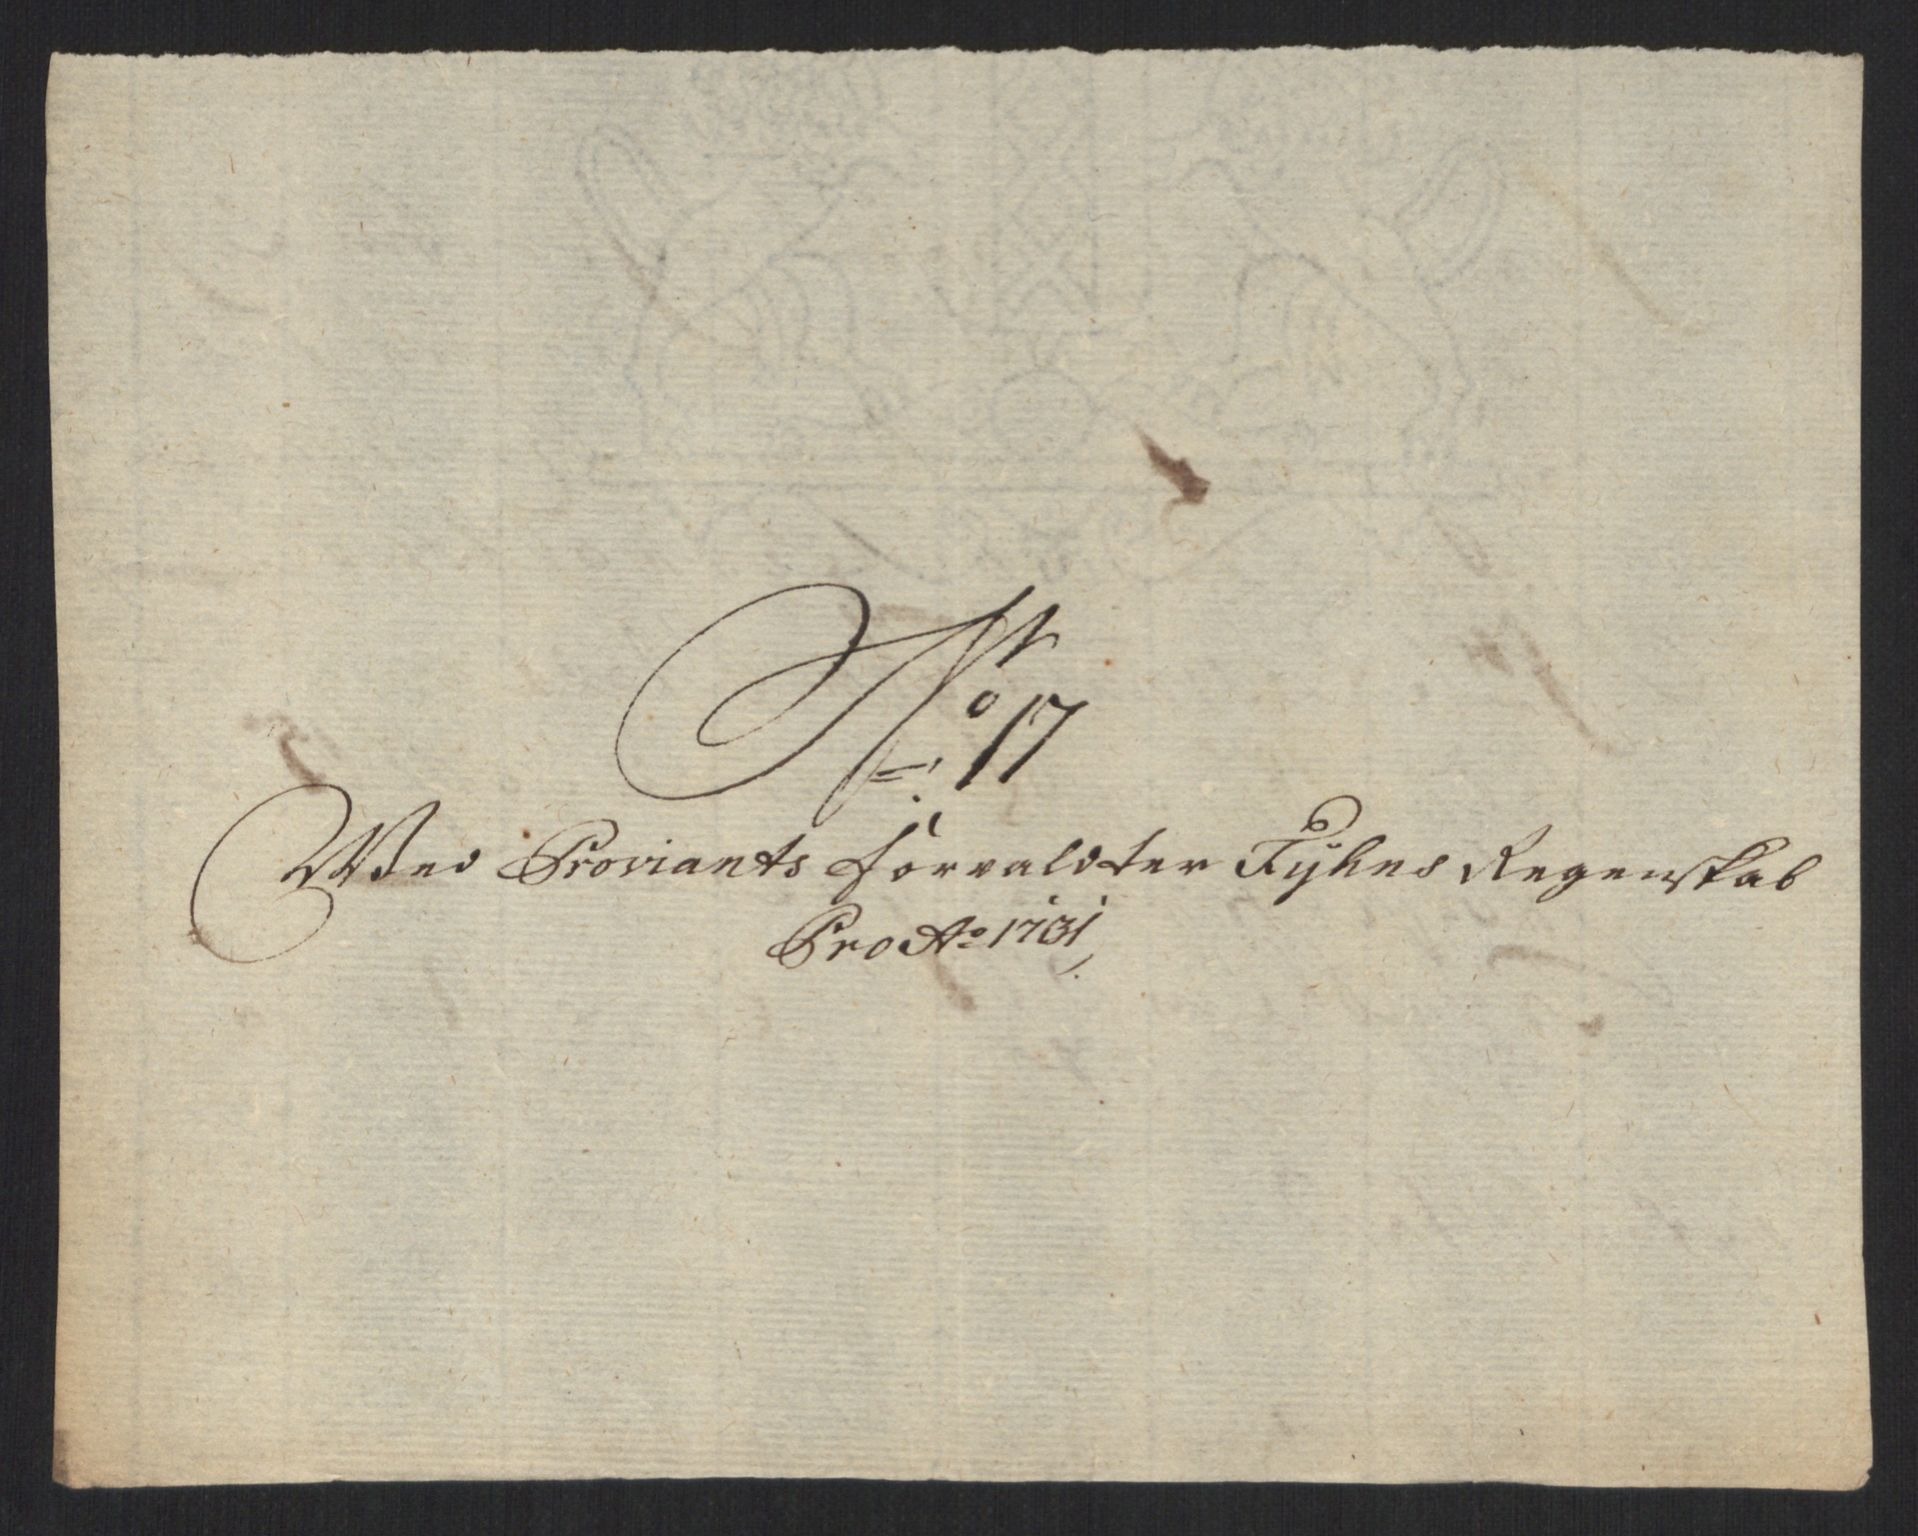 No 17
Wed Proviants Forvaldter Fÿhns Regenskab
Pro Ao 1731